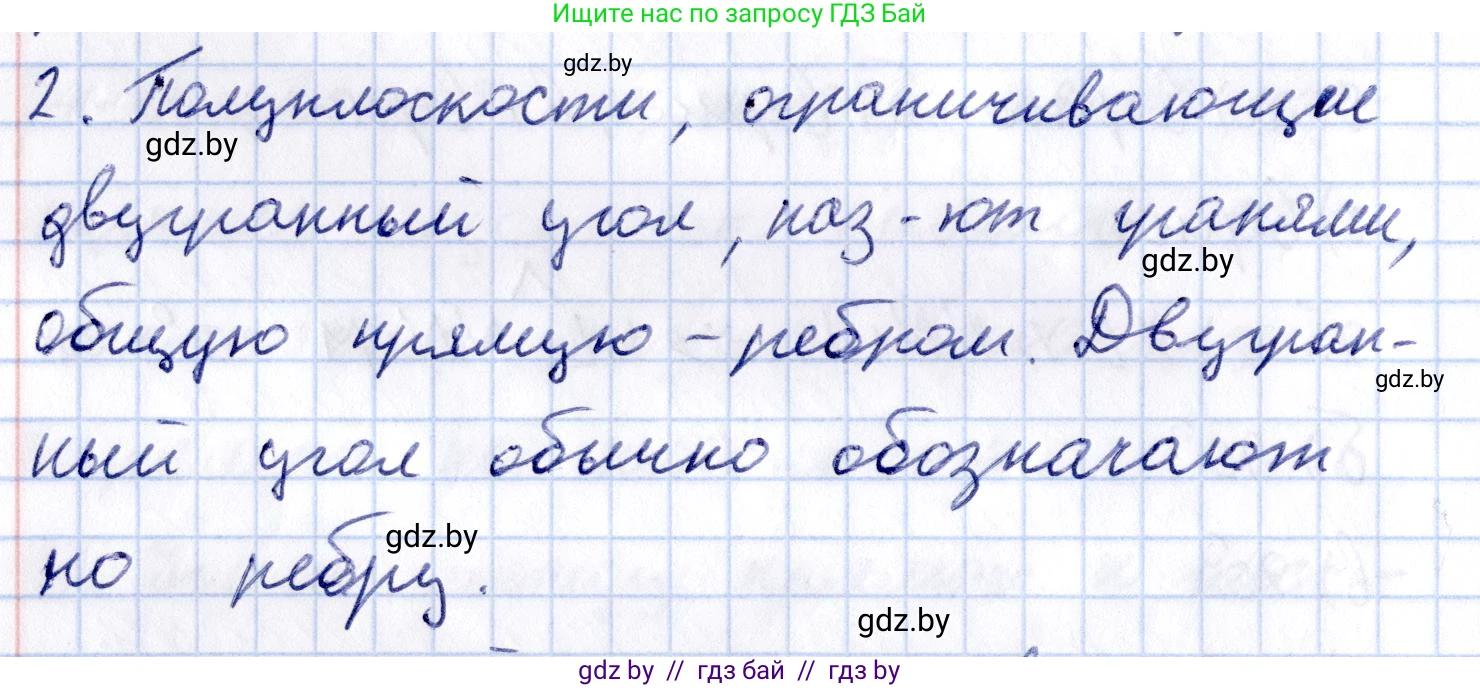 Ищите нас по запросу ГДЗ Бай
gdz.by
2. Полуплоскости, ограничивающие
gdz.by
двугранный угол, наз-ют гранями,
gdz.by
общую прямую - ребром. Двугран-
gdz.by
ный угол обычно обозначают
gdz.by
по ребру.
gdz.by
gdz.by // гдз бай // gdz.by